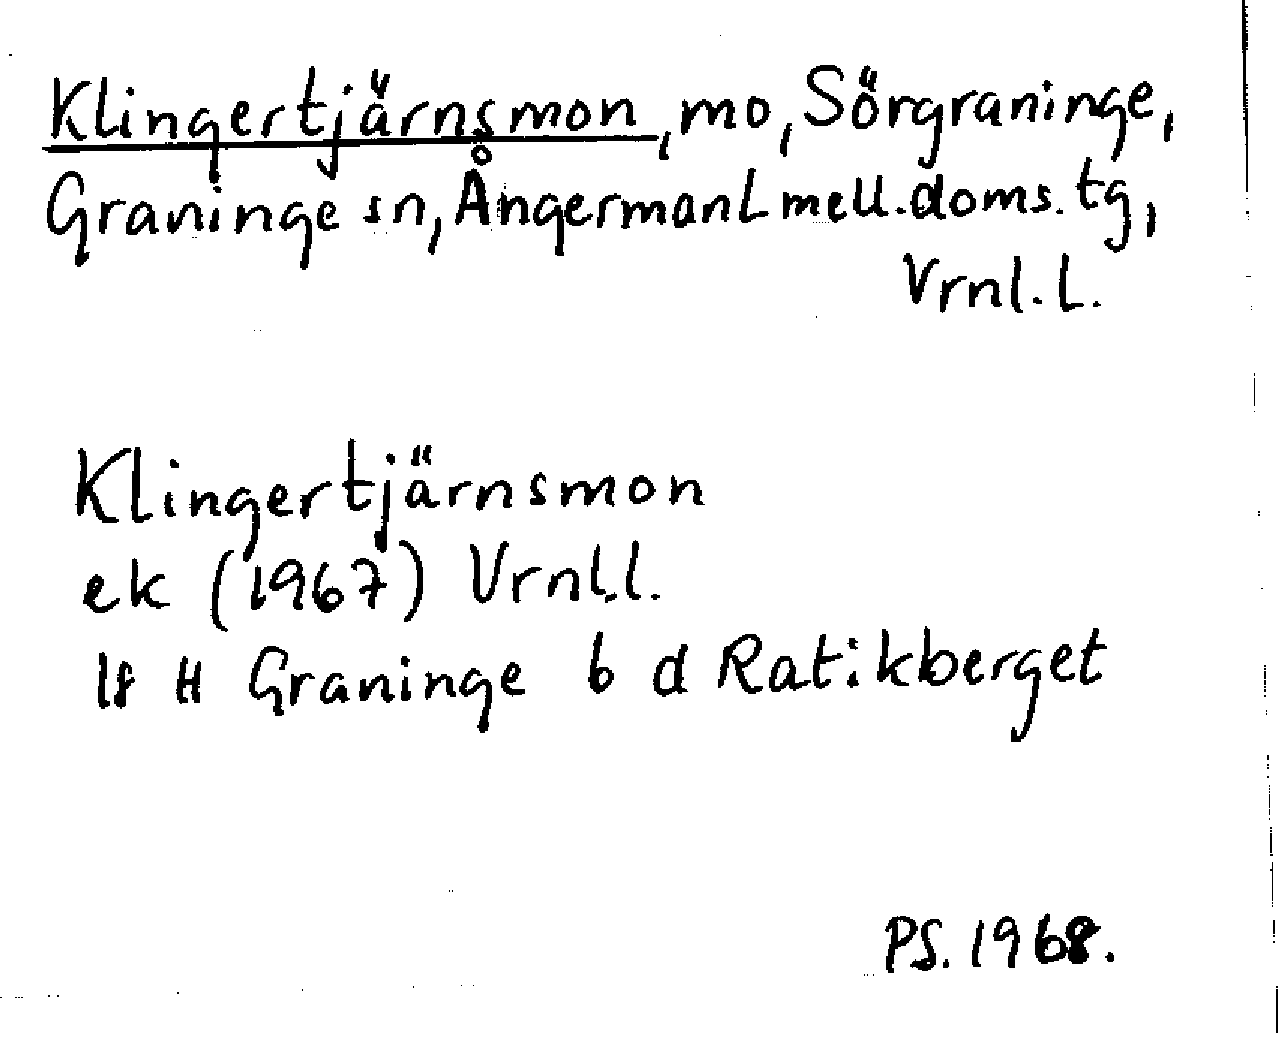 Klingertjärnsmon, mo, Sörgraninge,
Graninge sn, Ångermanl mell. doms. tg,
Vrnl. l.
Klingertjärnsmon
ek (1967) Vrnl.l.
18 H Graninge 6 d Ratikberget
PS. 1968.